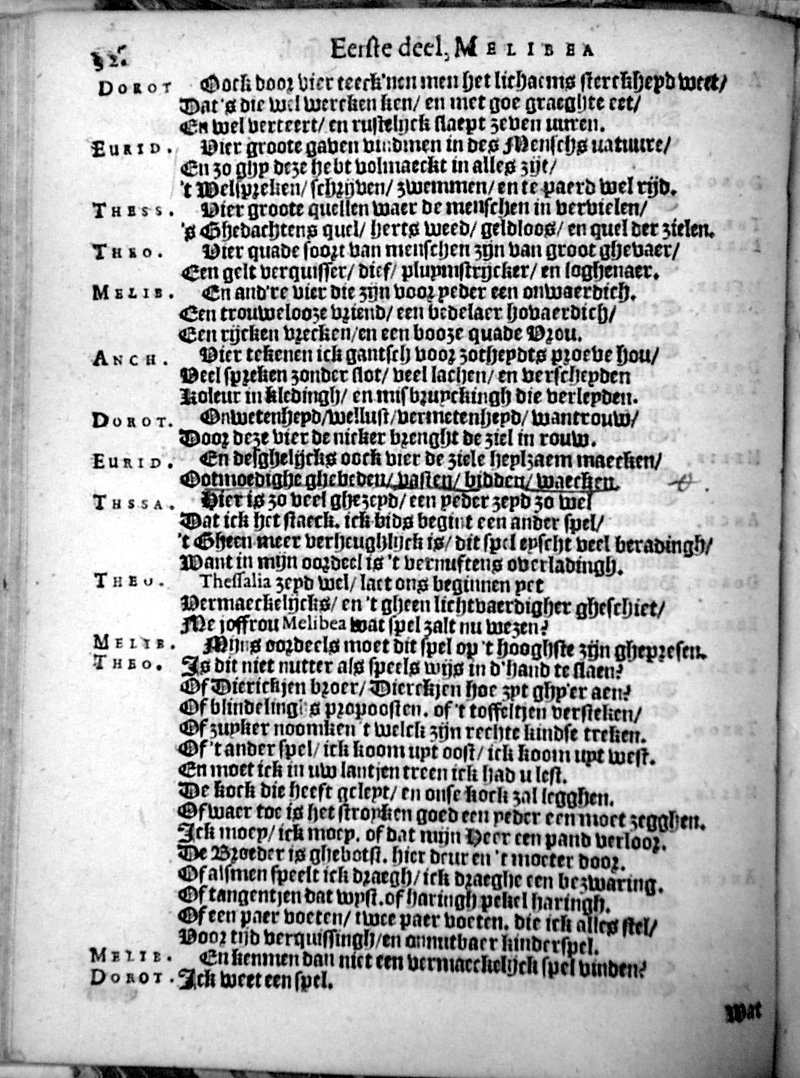 52. Eerste deel, MELIBEA
DOROT Oock door vier teeck'nen men het lichaems sterckheyd weet/
Dat's die wel wercken ken/ en met goe graeghte eet/
En wel verteert/ en rustelijck slaept zeven uuren.
EURID. Vier groote gaven vindmen in des Menschs natuure/
En zo ghy deze hebt volmaeckt in alles zijt/
't Welspreken/ schrijven/ zwemmen/ en te paerd wel rijd.
THESS. Vier groote quellen waer de menschen in vervielen/
's Ghedachtens quel/ herts weed/ geldloos/ en quel der zielen.
THEO. Vier quade soort van menschen zijn van groot ghevaer/
Een gelt verquisser/ dief/ pluymstrijcker/ en loghenaer.
MELIB. En and're vier die zijn voor yeder een onwaerdich.
Een trouwelooze vriend/ een bedelaer hovaerdich/
Een rijcken vrecken/ en een booze quade Vrou.
ANCH. Vier tekenen ick gantsch voor zotheydts proeve hou/
Veel spreken zonder slot/ veel lachen/ en verscheyden
Koleur in kledingh/ en misbruyckingh die verleyden.
DOROT. Onwetenheyd/wellust/vermetenheyd/ wantrouw/
Door deze vier de nicker brenght de ziel in rouw.
EURID. En desghelijcks oock vier de ziele heylzaem maecken/
Ootmoedighe ghebeden/ vasten/ bidden/ waecken.
THSSA. Hier is zo veel ghezeyd/ een yeder zeyd zo wel
Dat ick het staeck. ick bids begint een ander spel/
't Gheen meer verheughlijck is/ dit spel eyscht veel beradingh/
Want in mijn oordeel is 't vernuftens overladingh.
THEO. Thessalia zeyd wel/ laet ons beginnen yet
Vermaeckelijcks/ en 't gheen lichtvaerdigher gheschiet/
Me joffrou Melibea wat spel zalt nu wezen?
MELIB. Mijns oordeels moet dit spel op 't hooghste zijn ghepresen.
THEO. Is dit niet nutter als speels wijs in d'hand te slaen?
Of Dierickjen broer/ Dierckjen hoe zyt ghy'er aen?
Of blindelinghs propoosten. of 't toffeltjen versteken/
Of zuyker noomken 't welck zijn rechte kindse treken.
Of 't ander spel/ ick koom uyt oost/ ick koom uyt west.
En moet ick in uw lantjen treen ick had u lest.
De kock die heeft geleyt/ en onse kock zal legghen.
Of waer toe is het stroyken goed een yeder een moet zegghen.
Ick moey/ ick moey. of dat mijn Heer een pand verloor.
De Broeder is ghebotst. hier deur en 't moeter door.
Of alsmen speelt ick draegh/ ick draeghe een bezwaring.
Of tangentjen dat wyst. of haringh pekel haringh.
Of een paer voeten/ twee paer voeten. die ick alles stel/
Voor tijd verquissingh/ en onnutbaer kinderspel.
MELIB. En kennen dan niet een vermaeckelijck spel vinden?
DOROT. Ick weet een spel.
Wat